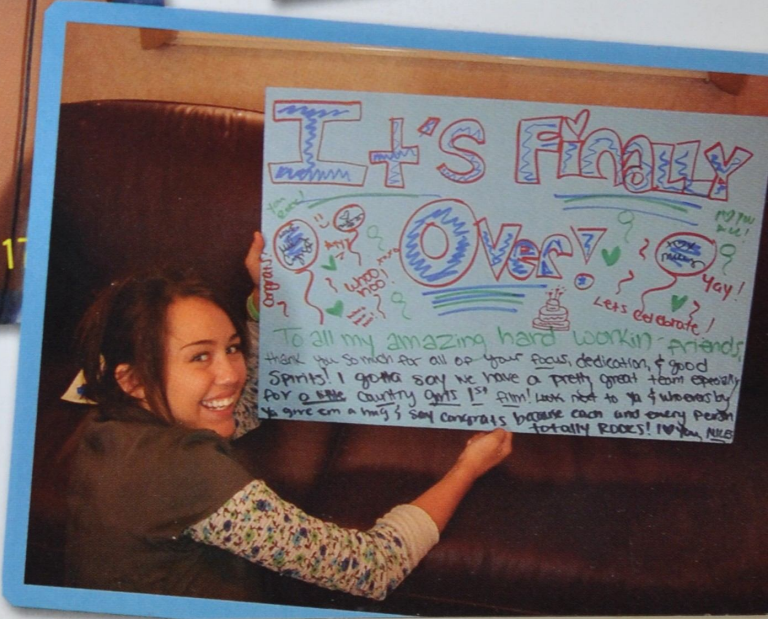 17
It's Finally
You Rock!
Over!
Congrats!
Yay!
Whoo hoo!
Yay!
Let's celebrate!
To all my amazing hard workin' friends,
thank you so much for all of your focus, dedication, & good
spirits! I gotta say we have a pretty great team especially
for a little country girls 1st film! Look next to ya & whoevers by
ya give em a hug & say congrats because each and every person
totally ROCKS! I ♥ you, MILES